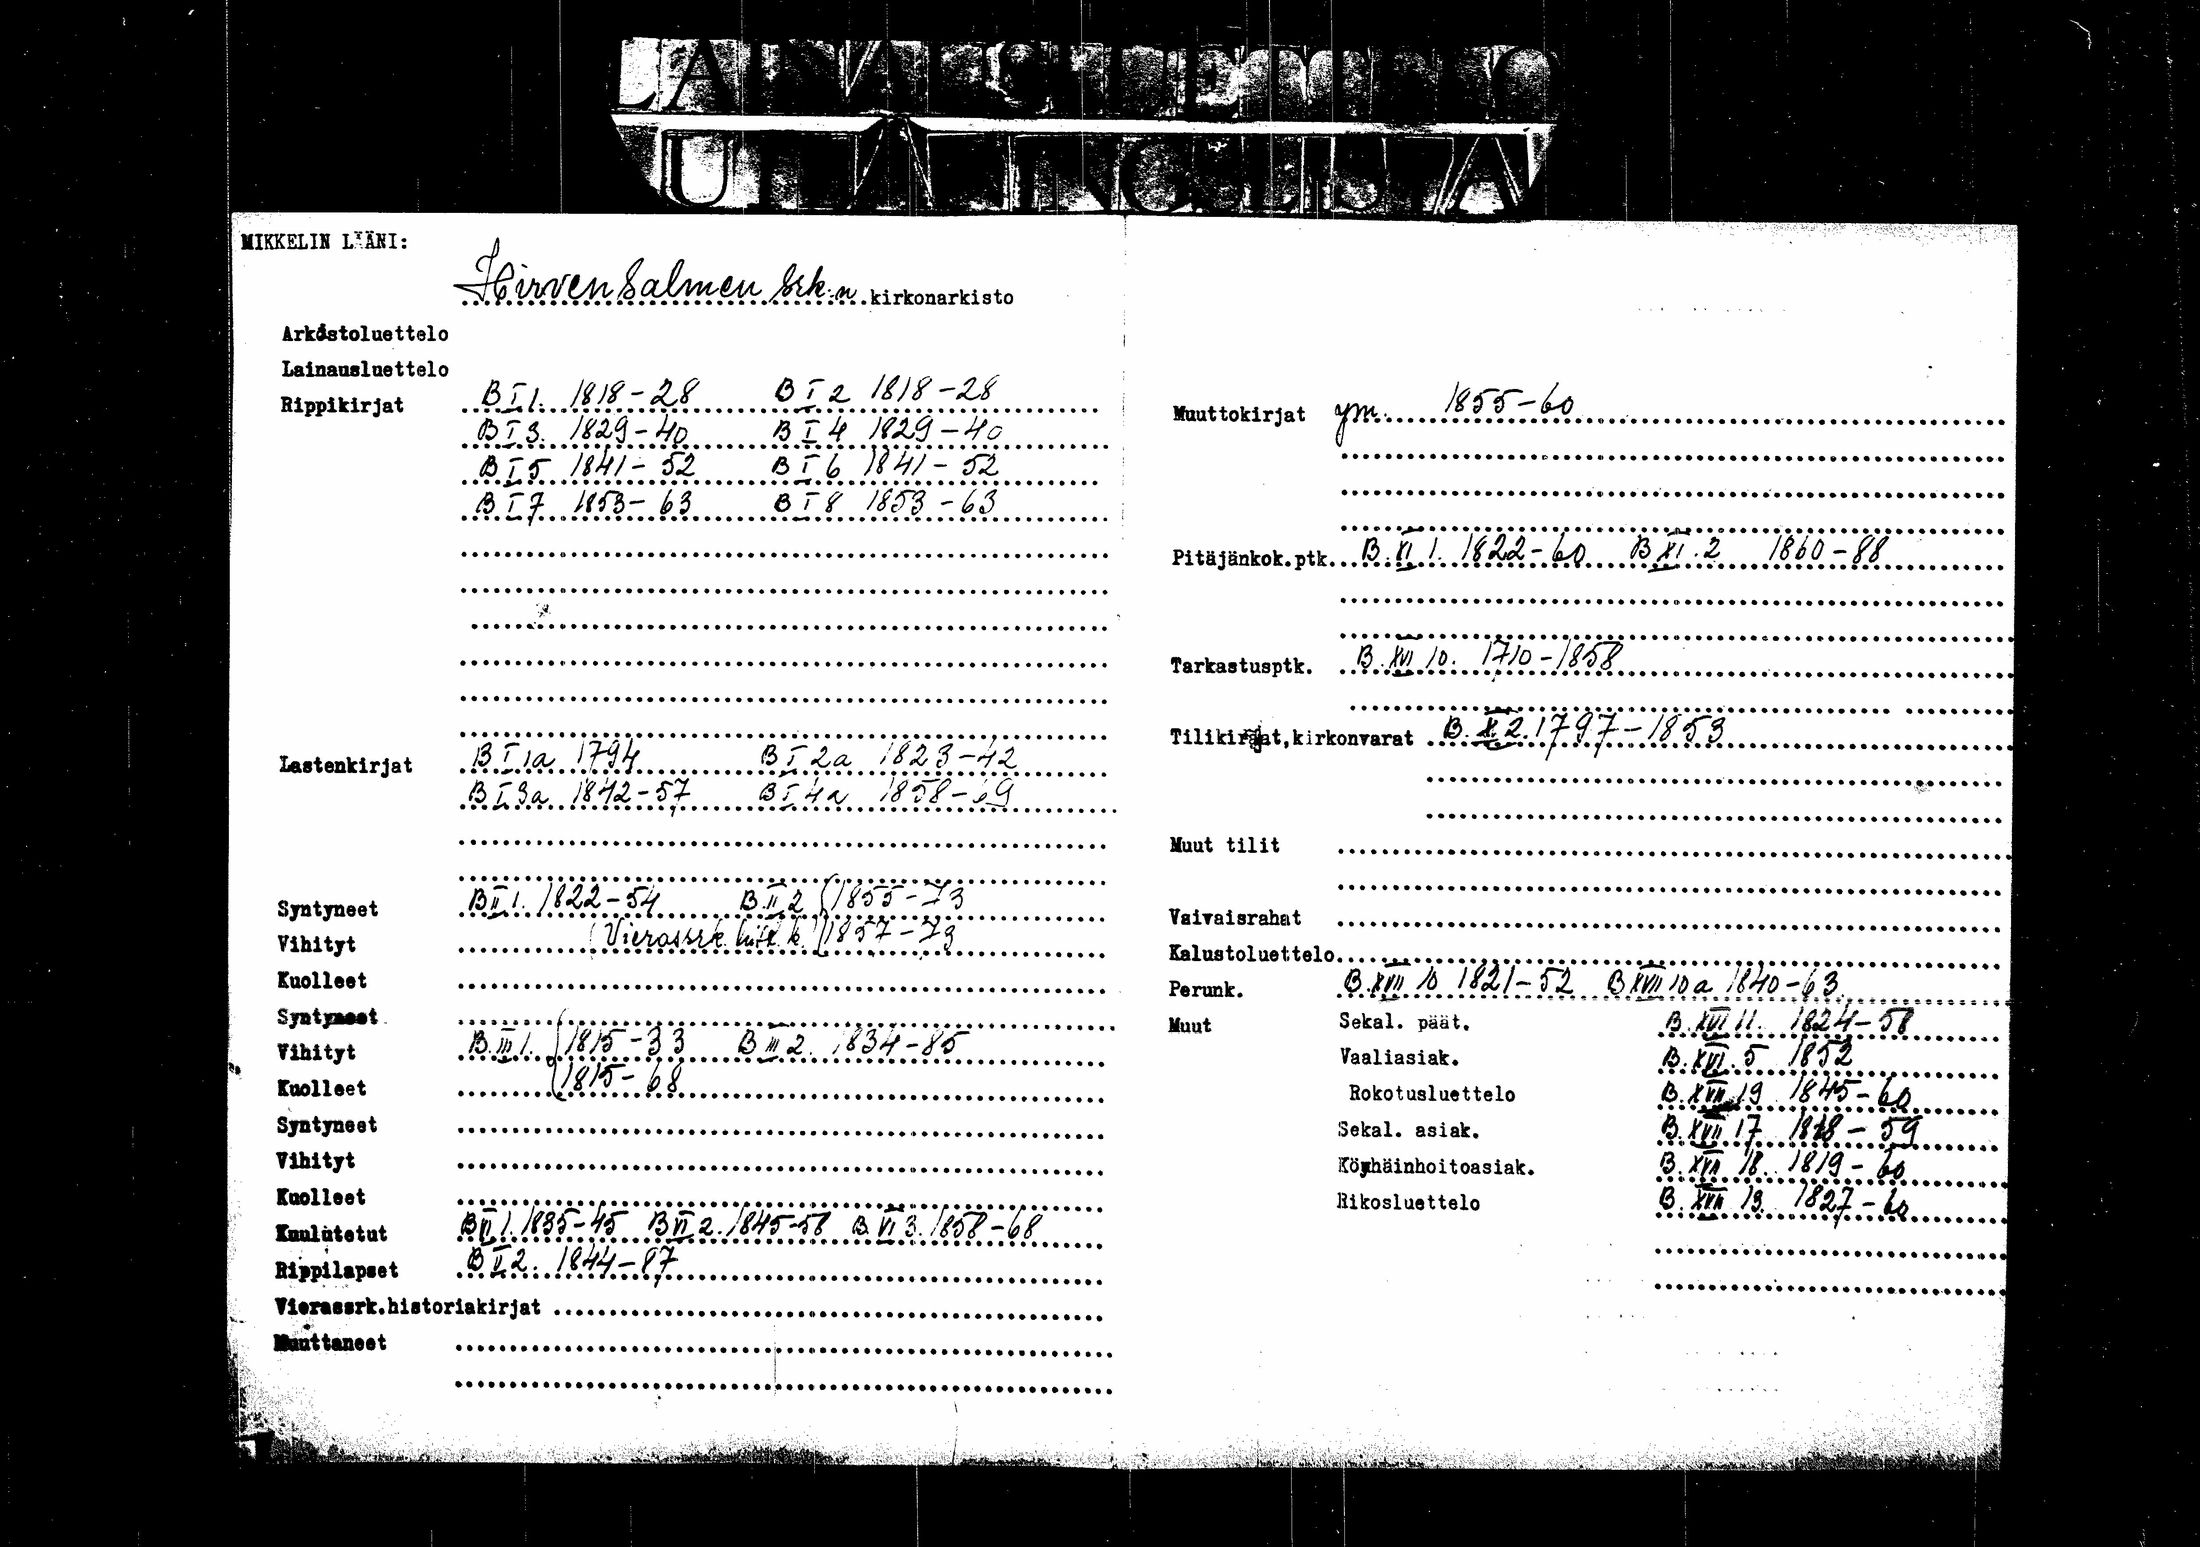 LAINAUSLUETTELO
UTLÅNINGSLISTA
MIKKELIN LÄÄNI:
Hirvensalmen srk:n kirkonarkisto
Arkistoluettelo
Lainausluettelo
Rippikirjat B I 1. 1818-28 B I 2 1818-28
B I 3. 1829-40 B I 4 1829-40
B I 5 1841-52 B I 6 1841-52
B I 7 1853-63 B I 8 1853-63
Lastenkirjat B I 1a 1794 B I 2a 1823-42
B I 3a 1842-57 B I 4a 1858-69
Syntyneet B II 1. 1822-54 B II 2 (1855-73
Vihityt (Vierassrk. hist.k.) (1857-73
Kuolleet
Syntyneet
Vihityt B III 1. (1815-33 B III 2. 1834-85
Kuolleet (1815-68
Syntyneet
Vihityt
Kuolleet
Kuulutetut B VI 1. 1835-45 B VI 2. 1845-58 B VI 3. 1858-68
Rippilapset B II 2. 1844-87
Vierassrk.historiakirjat
Muuttaneet
Muuttokirjat ym. 1855-60
Pitäjänkok.ptk. B. XI 1. 1822-60 B XI. 2 1860-88
Tarkastusptk. B. XVI 10. 1710-1858
Tilikirjat,kirkonvarat B. X 2. 1797-1853
Muut tilit
Vaivaisrahat
Kalustoluettelo
Perunk. B. XVII 10 1821-52 B XVII 10a 1840-63
Muut Sekal. päät. B. XVI 11. 1824-58
Vaaliasiak. B. XVI. 5 1852
Rokotusluettelo B. XVII 19 1845-60
Sekal. asiak. B. XVII 17 1818-59
Köyhäinhoitoasiak. B. XVII 18. 1819-60
Rikosluettelo B. XVII 13. 1827-60